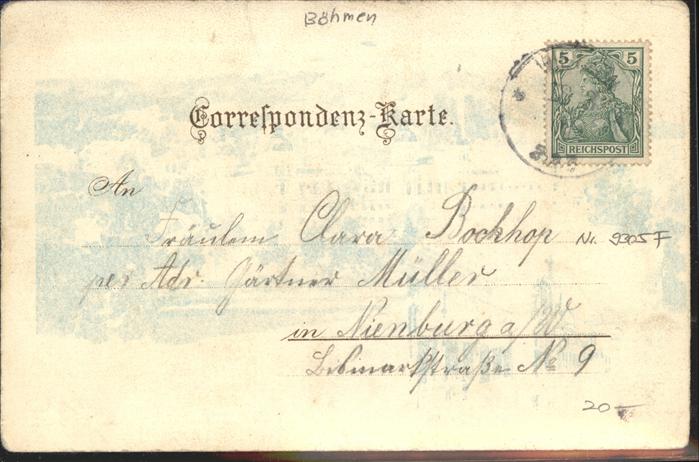 Böhmen
5 5
REICHSPOST
Correspondenz-Karte.
An
Fräulein Clara Bockhop
Nr. 9305F
per Adr. Gärtner Müller
in Nienburg a/W
Bismarkstraße No 9
20-